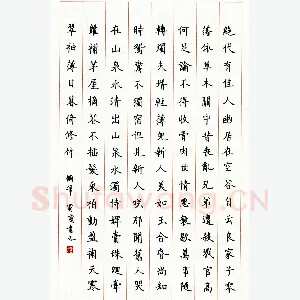 絕代有佳人幽居在空谷自云良家子零
落依草木關中昔喪亂兄弟遭殺戮官高
何足論不得收骨肉世情惡衰歇萬事隨
轉燭夫壻輕薄兒新人美如玉合昏尚知
時鴛鴦不獨宿但見新人笑那聞舊人哭
在山泉水清出山泉水濁侍婢賣珠迴牽
蘿補茅屋摘花不插髮采柏動盈掬天寒
翠袖薄日暮倚修竹